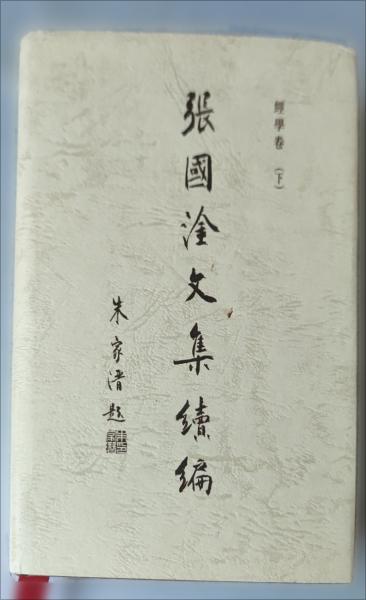 經學卷(下)
張國淦文集續編
朱家溍題